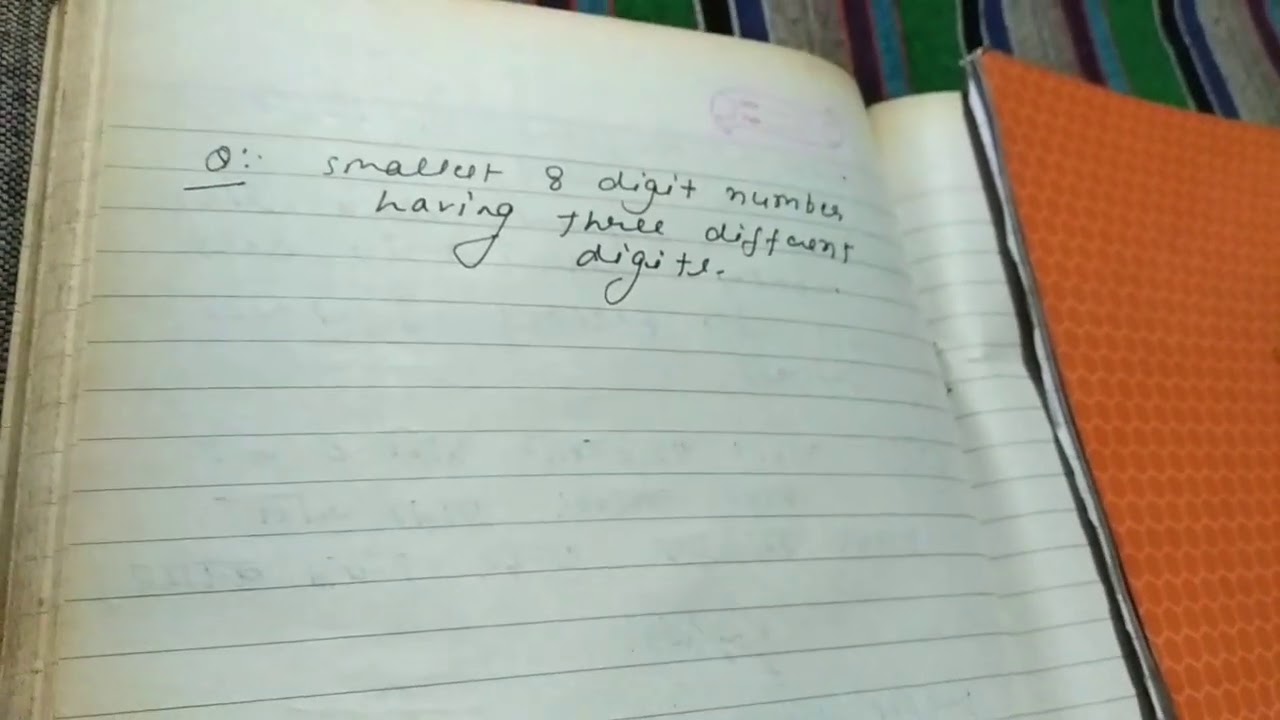 Q:- smallest 8 digit number
having three different
digits.